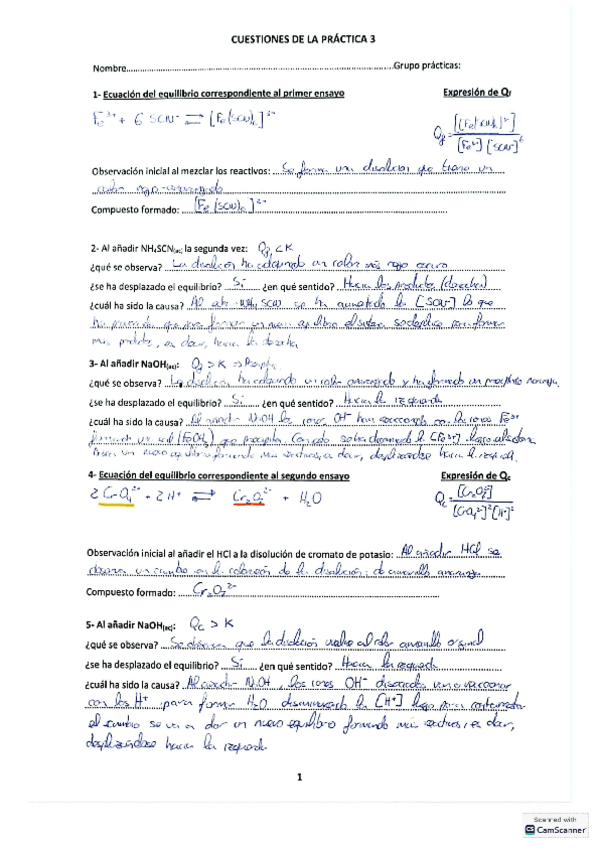 CUESTIONES DE LA PRÁCTICA 3
Nombre...Grupo prácticas:
1- Ecuación del equilibrio correspondiente al primer ensayo Expresión de Qf
Fe³⁺ + 6 SCN⁻ ⇌ [Fe(SCN)₆]³⁻
Observación inicial al mezclar los reactivos: Se forma una disolución que tiene un
color rojo-anaranjado
Compuesto formado: [Fe(SCN)₆]³⁻
2- Al añadir NH₄SCN(ac) la segunda vez: Qf < K
¿qué se observa? La disolución ha adquirido un color más rojo oscuro
¿se ha desplazado el equilibrio? Sí ¿en qué sentido? Hacia los productos (derecha)
¿cuál ha sido la causa? Al NH₄SCN se ha aumentado la [SCN⁻] lo que
ha provocado que para formar un nuevo equilibrio el sistema se desplace para formar
más productos, es decir, hacia la derecha
3- Al añadir NaOH(ac): Qf > K ⇒
¿qué se observa? La disolución ha adquirido un color anaranjado y ha formado un precipitado naranja
¿se ha desplazado el equilibrio? Sí ¿en qué sentido? Hacia la izquierda
¿cuál ha sido la causa? Al añadir NaOH los iones OH⁻ han reaccionado con los iones Fe³⁺
formando que precipita. disminuido la [Fe³⁺]
un nuevo equilibrio formando más reactivos, es decir, desplazándose hacia la izquierda.
4- Ecuación del equilibrio correspondiente al segundo ensayo Expresión de Qc
2 CrO₄²⁻ + 2 H⁺ ⇌ Cr₂O₇²⁻ + H₂O
Qc = [Cr₂O₇²⁻] / [CrO₄²⁻]² [H⁺]²
Observación inicial al añadir el HCl a la disolución de cromato de potasio: Al añadir HCl se
observa un cambio en la coloración de la disolución: de amarillo a naranja
Compuesto formado: Cr₂O₇²⁻
5- Al añadir NaOH(ac): Qc > K
¿qué se observa? Se observa que la disolución vuelve al color amarillo original
¿se ha desplazado el equilibrio? Sí ¿en qué sentido? Hacia la izquierda
¿cuál ha sido la causa? Al añadir NaOH, los iones OH⁻ van a reaccionar
con los H⁺ para formar H₂O disminuyendo la [H⁺] luego para contrarrestar
el cambio se va a dar un nuevo equilibrio formando más reactivos, es decir,
desplazándose hacia la izquierda
1
Scanned with
CamScanner